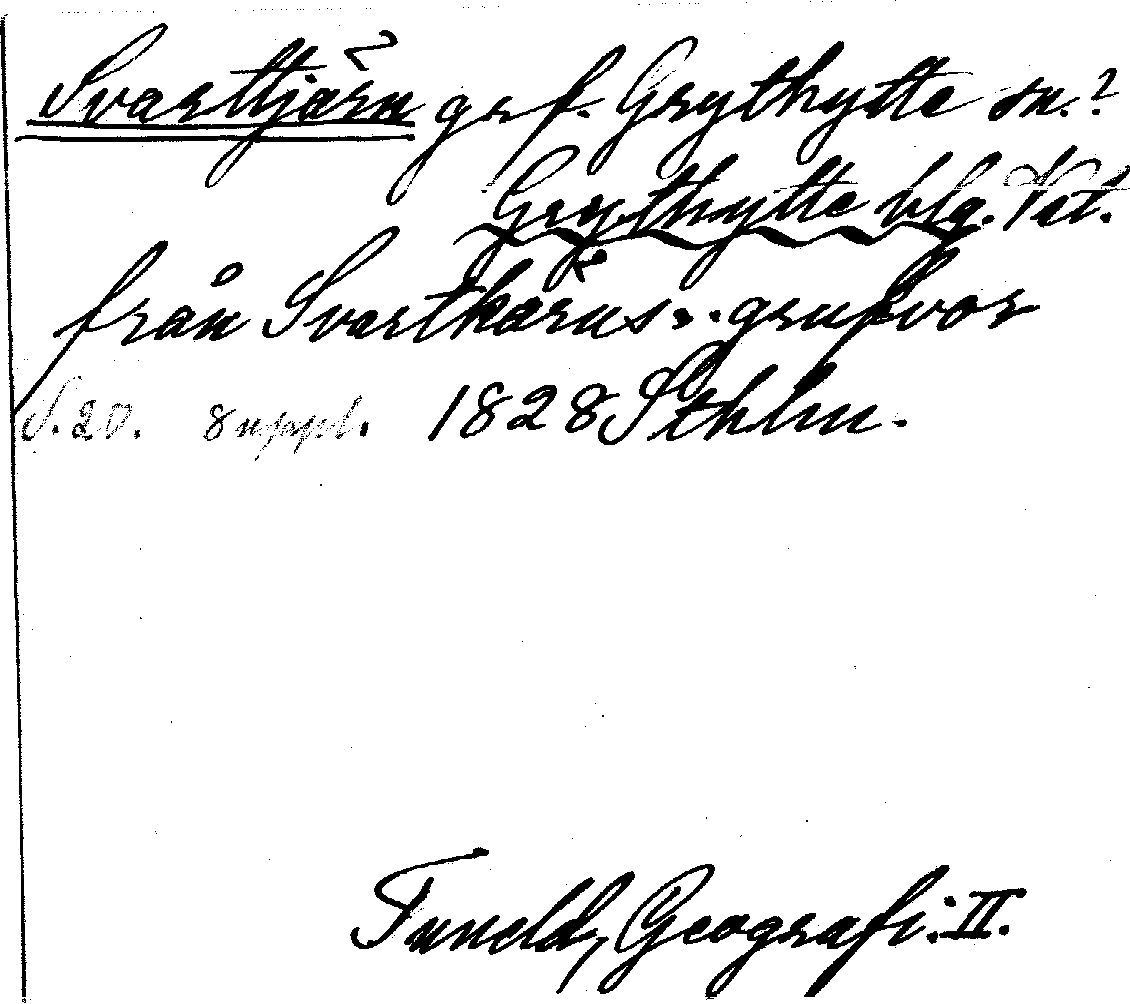 Svarttjärn grf. Grythytte sn.?
Grythytte blg. Vst.
från Svartkärns.. grufvor
S. 20. suppl. 1828 Sthlm.
Tuneld, Geografi. II.